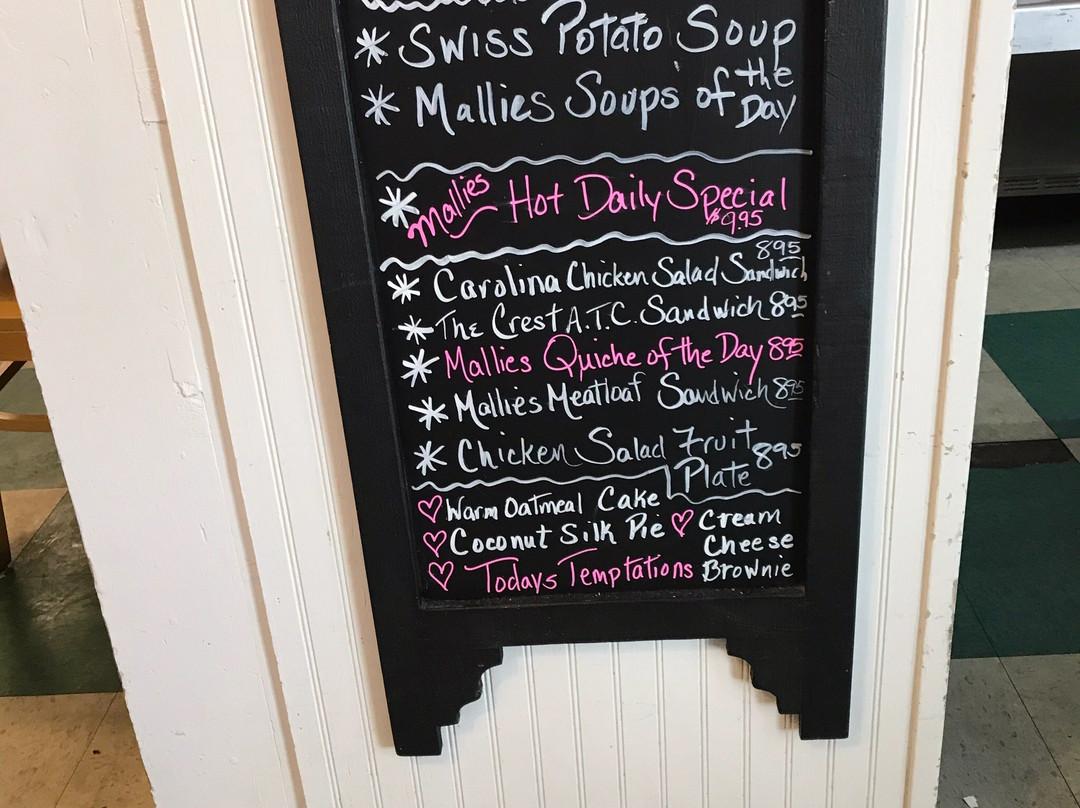 * Swiss Potato Soup
* Mallies Soups of the Day
* Mallies Hot Daily Special
$9.95
* Carolina Chicken Salad Sandwich 895
* The Crest A.T.C. Sandwich 895
* Mallies Quiche of the Day 895
* Mallies Meatloaf Sandwich 895
* Chicken Salad Fruit Plate 895
♡ Warm Oatmeal Cake
♡ Coconut Silk Pie
♡ Cream Cheese Brownie
♡ Todays Temptations